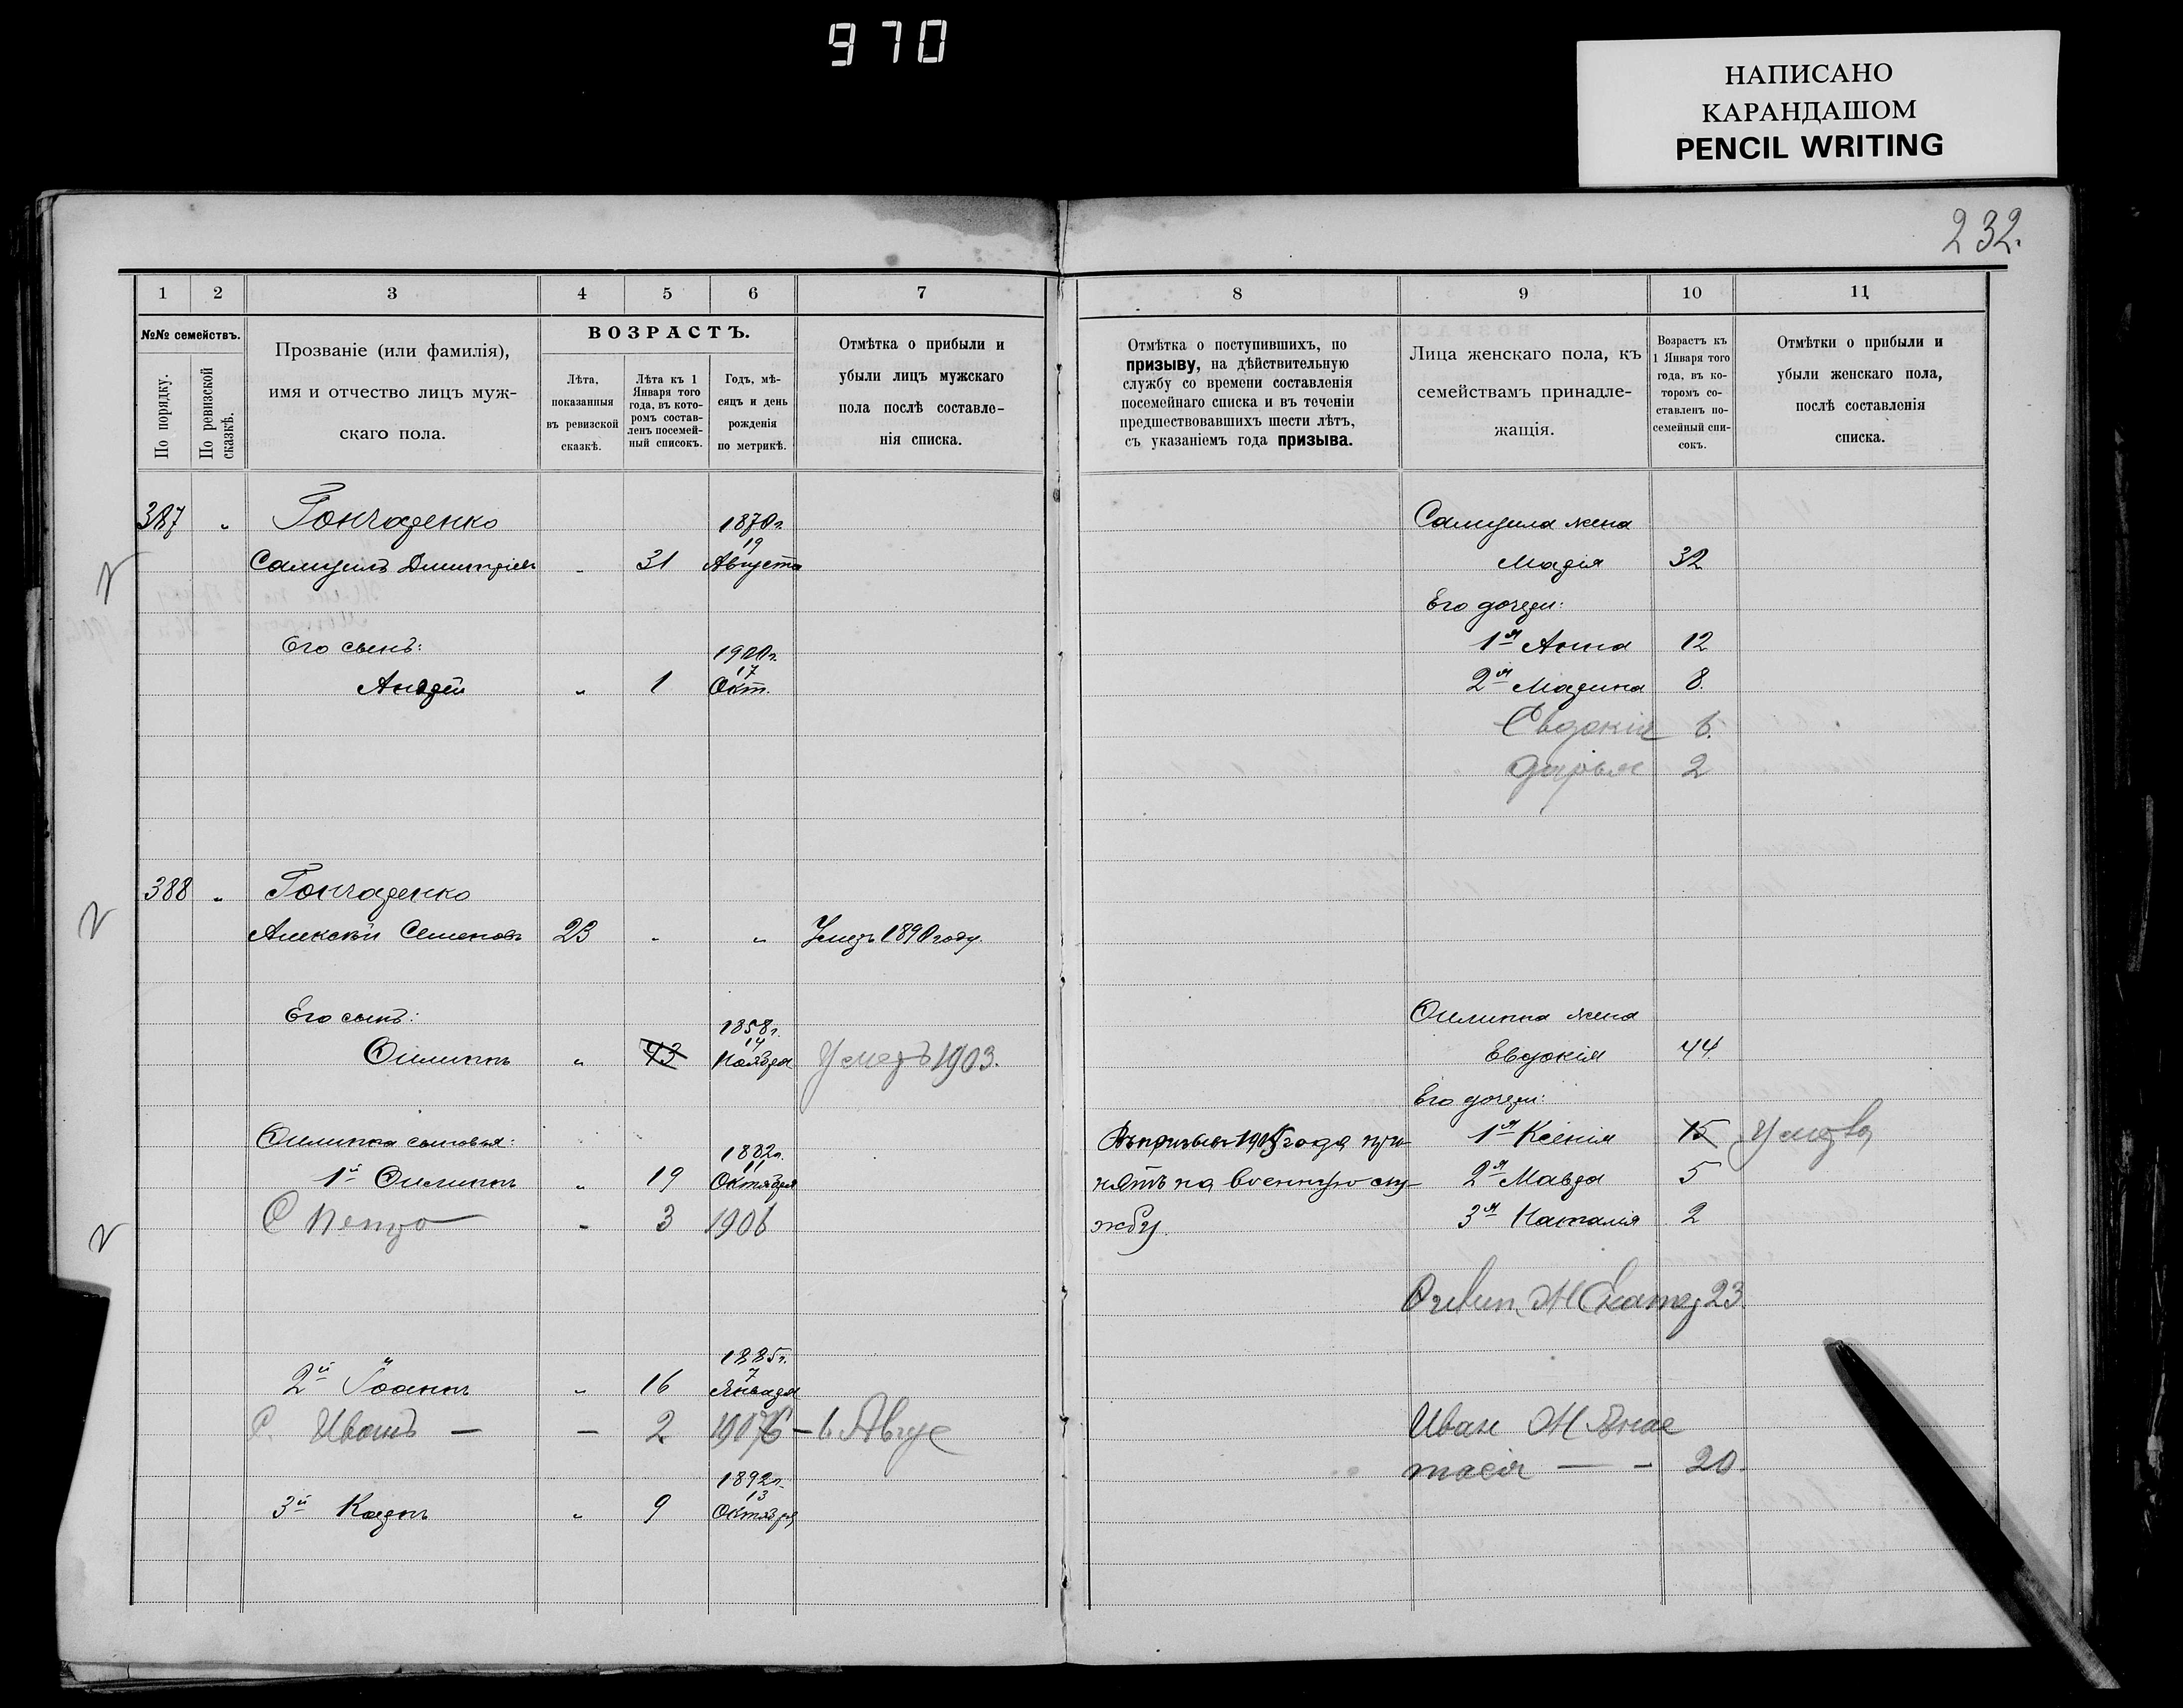 970
НАПИСАНО
КАРАНДАШОМ
PENCIL WRITING
232.
1 2 3 4 5 6 7
№№ семействъ.
По порядку.
По ревизской сказкѣ.
Прозваніе (или фамилія),
имя и отчество лицъ муж-
скаго пола.
ВОЗРАСТЪ.
Лѣта,
показанныя
въ ревизской
сказкѣ.
Лѣта къ 1
Января того
года, въ кото-
ромъ состав-
ленъ посемей-
ный списокъ.
Годъ, мѣ-
сяцъ и день
рожденія
по метрикѣ.
Отмѣтка о прибыли и
убыли лицъ мужскаго
пола послѣ составле-
нія списка.
387 " Гончаренко 1870г.
19
Самуилъ Димитріевъ " 31 Августа
Его сынъ: 1900г.
17
Андрей " 1 Окт.
388 " Гончаренко
Алексѣй Семеновъ 23 " " Умеръ 1890 году.
Его сынъ: 1858г.
14
Филиппъ " 43 Ноября Умеръ 1903.
Филиппа сыновья: 1882г.
11
1й Филиппъ " 19 Октября
С Петро - 3 1906
1885г.
7
2й Іоаннъ " 16 Января
С. Иванъ — — 2 1907 6 — 6 Авгус
1892г.
13
3й Карпъ " 9 Октября
8 9 10 11
Отмѣтка о поступившихъ, по
призыву, на дѣйствительную
службу со времени составленія
посемейнаго списка и въ теченіи
предшествовавшихъ шести лѣтъ,
съ указаніемъ года призыва.
Лица женскаго пола, къ
семействамъ принадле-
жащія.
Возрастъ къ
1 Января того
года, въ ко-
торомъ со-
ставленъ по-
семейный спи-
сокъ.
Отмѣтки о прибыли и
убыли женскаго пола,
послѣ составленія
списка.
Самуила жена
Марія 32
Его дочери:
1я Анна 12
2я Марина 8.
Евдокія 6.
Дарья 2
Филиппа жена
Евдокія 44
Его дочери:
Въ призывъ 1905 года при-
нятъ на военную слу-
жбу.
1я Ксенія 15 Умерла
2я Мавра 5
3я Наталія 2
Филип. Ж Екатер 23.
Иван Ж Анас
тасія — - 20.